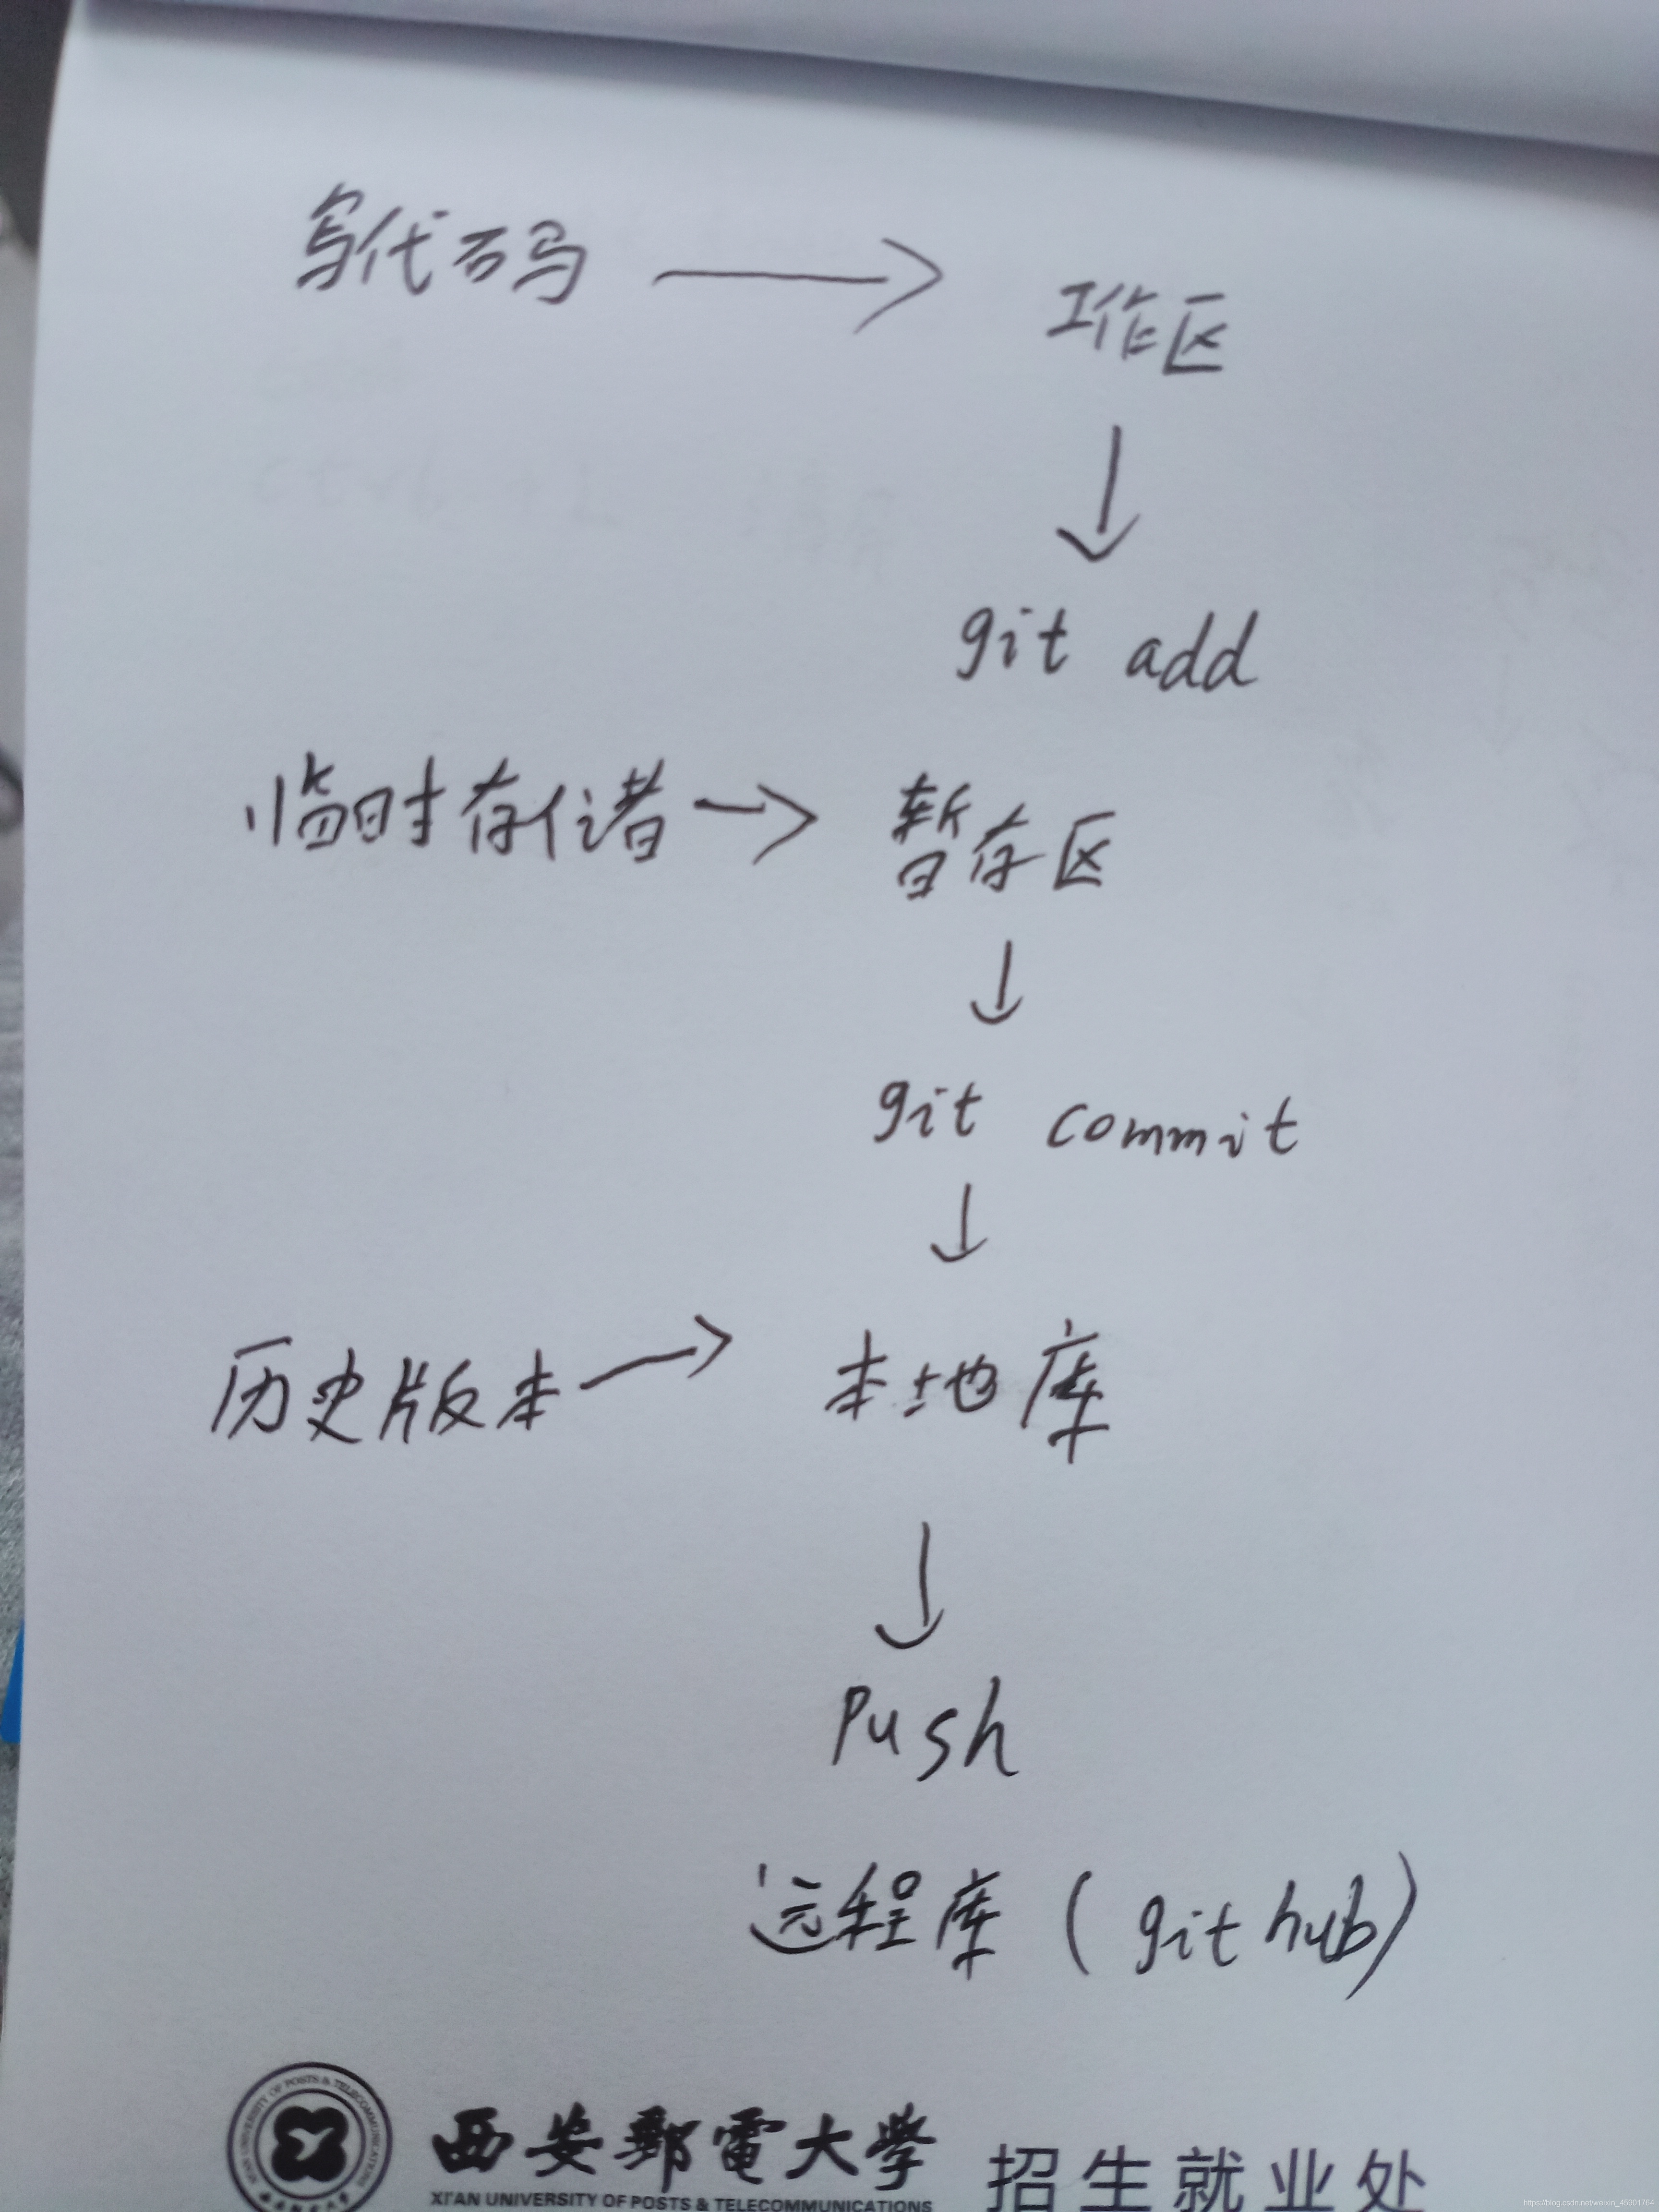 写代码 → 工作区
↓
git add
临时存储 → 暂存区
↓
git commit
↓
历史版本 → 本地库
↓
Push
远程库 (git hub)
西安郵電大學 招生就业处
XI'AN UNIVERSITY OF POSTS & TELECOMMUNICATIONS
https://blog.csdn.net/weixin_45901764